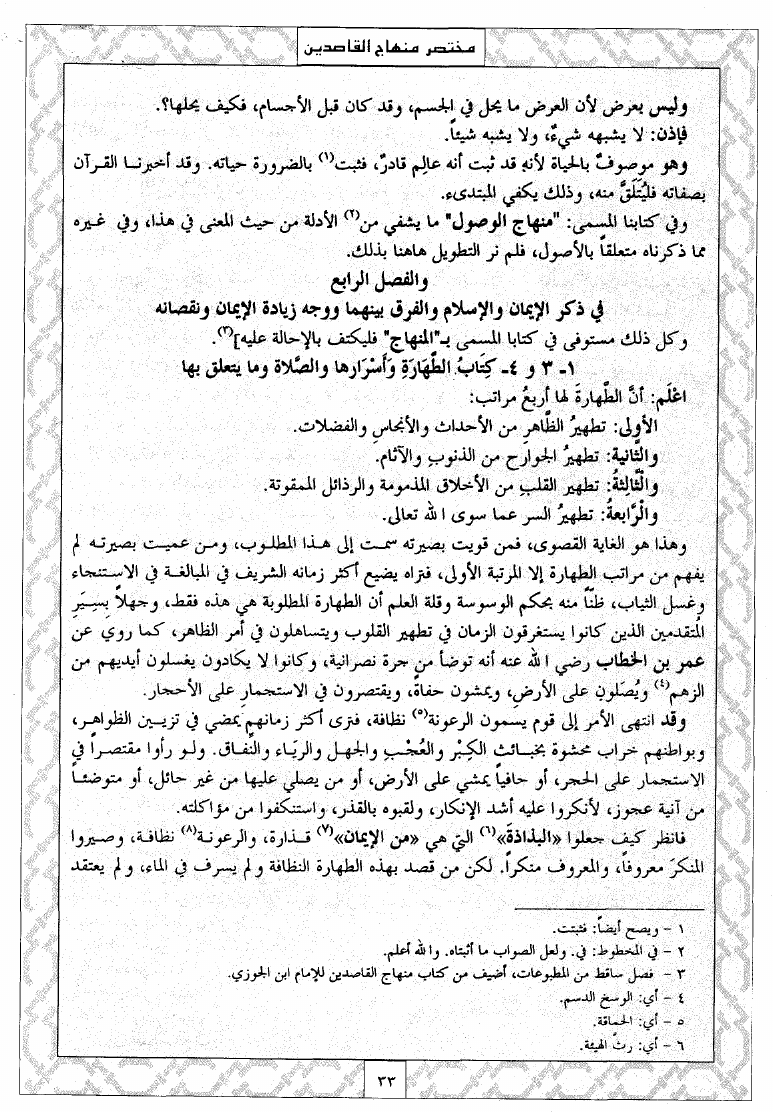 مختصر منهاج القاصدين
وليس بعرض لأن العرض ما يحل في الجسم، وقد كان قبل الأجسام، فكيف يحلها؟.
فإذن: لا يشبهه شيءٌ، ولا يشبه شيئاً.
وهو موصوفٌ بالحياة لأنه قد ثبت أنه عالِم قادرٌ، فثبت(١) بالضرورة حياته. وقد أخبرنـا القـرآن
بصفاته فليُتَلَقَّ منه، وذلك يكفي المبتدىء.
وفي كتابنا المسمى: "منهاج الوصول" ما يشفي من(٢) الأدلة من حيث المعنى في هذا، وفي غـيره
مما ذكرناه متعلقاً بالأصول، فلم نر التطويل هاهنا بذلك.
والفصل الرابع
في ذكر الإيمان والإسلام والفرق بينهما ووجه زيادة الإيمان ونقصانه
وكل ذلك مستوفى في كتابا المسمى بـ"المنهاج" فليكتف بالإحالة عليه](٣).
١- ٣ و ٤- كِتَابُ الطَّهَارَةِ وَأَسْرَارِها والصَّلاة وما يتعلق بها
اعْلَم: أنَّ الطَّهارةَ لها أربعُ مراتب:
الأولى: تطهيرُ الظَّاهرِ من الأحداث والأنجاسِ والفضلات.
والثَّانية: تطهيرُ الجوارح من الذنوبِ والآثام.
والثَّالِثةُ: تطهير القلبِ من الأخلاق المذمومة والرذائل الممقوتة.
والرَّابعةُ: تطهيرُ السر عما سوى الله تعالى.
وهذا هو الغاية القصوى، فمن قويت بصيرته سمـت إلى هـذا المطلـوب، ومـن عميـت بصيرتـه لم
يفهم من مراتب الطهارة إلا المرتبة الأولى، فتراه يضيع أكثر زمانه الشريف في المبالغـة في الاسـتنجاء
وغسل الثياب، ظنّاً منه بحكم الوسوسة وقلة العلم أن الطهارة المطلوبة هي هذه فقط، وجهلاً بِسِيَرِ
المتقدمين الذين كانوا يستغرقون الزمان في تطهير القلوب ويتساهلون في أمر الظاهر، كمـا روي عن
عمر بن الخطاب رضي الله عنه أنه توضأ من جرة نصرانية، وكانوا لا يكادون يغسلون أيديهم من
الزهم(٤) ويُصَلون على الأرضِ، ويمشون حفاةً، ويقتصرون في الاستجمار على الأحجار.
وقد انتهى الأمر إلى قوم يسمون الرعونة(٥) نظافة، فترى أكثر زمانهم يمضي في تزيـين الظواهـر،
وبواطنهم خراب محشوة بخبـائث الكِبْر والعُجْـبِ والجهـل والريَـاء والنفـاق. ولـو رأوا مقتصـراً في
الاستجمار على الحجر، أو حافياً يمشي على الأرض، أو من يصلي عليها من غير حائل، أو متوضئـا
من آنية عجوز، لأنكروا عليه أشد الإنكار، ولقبوه بالقذر، واستنكفوا من مؤاكلته.
فانظر كيف جعلوا «البذاذة»(٦) التي هي «من الإيمان»(٧) قـذارة، والرعونـة(٨) نظافـة، وصـيروا
المنكرَ معروفاً، والمعروف منكراً. لكن من قصد بهذه الطهارة النظافة ولم يسرف في الماء، ولم يعتقد
١ – ويصح أيضاً: فثبتت.
٢ – في المخطوط: في. ولعل الصواب ما أثبتاه. والله أعلم.
٣ – فصل ساقط من المطبوعات، أضيف من كتاب منهاج القاصدين للإمام ابن الجوزي.
٤ – أي: الوسخ الدسم.
٥ – أي: الحماقة.
٦ – أي: رثّ الهيئة.
٣٣